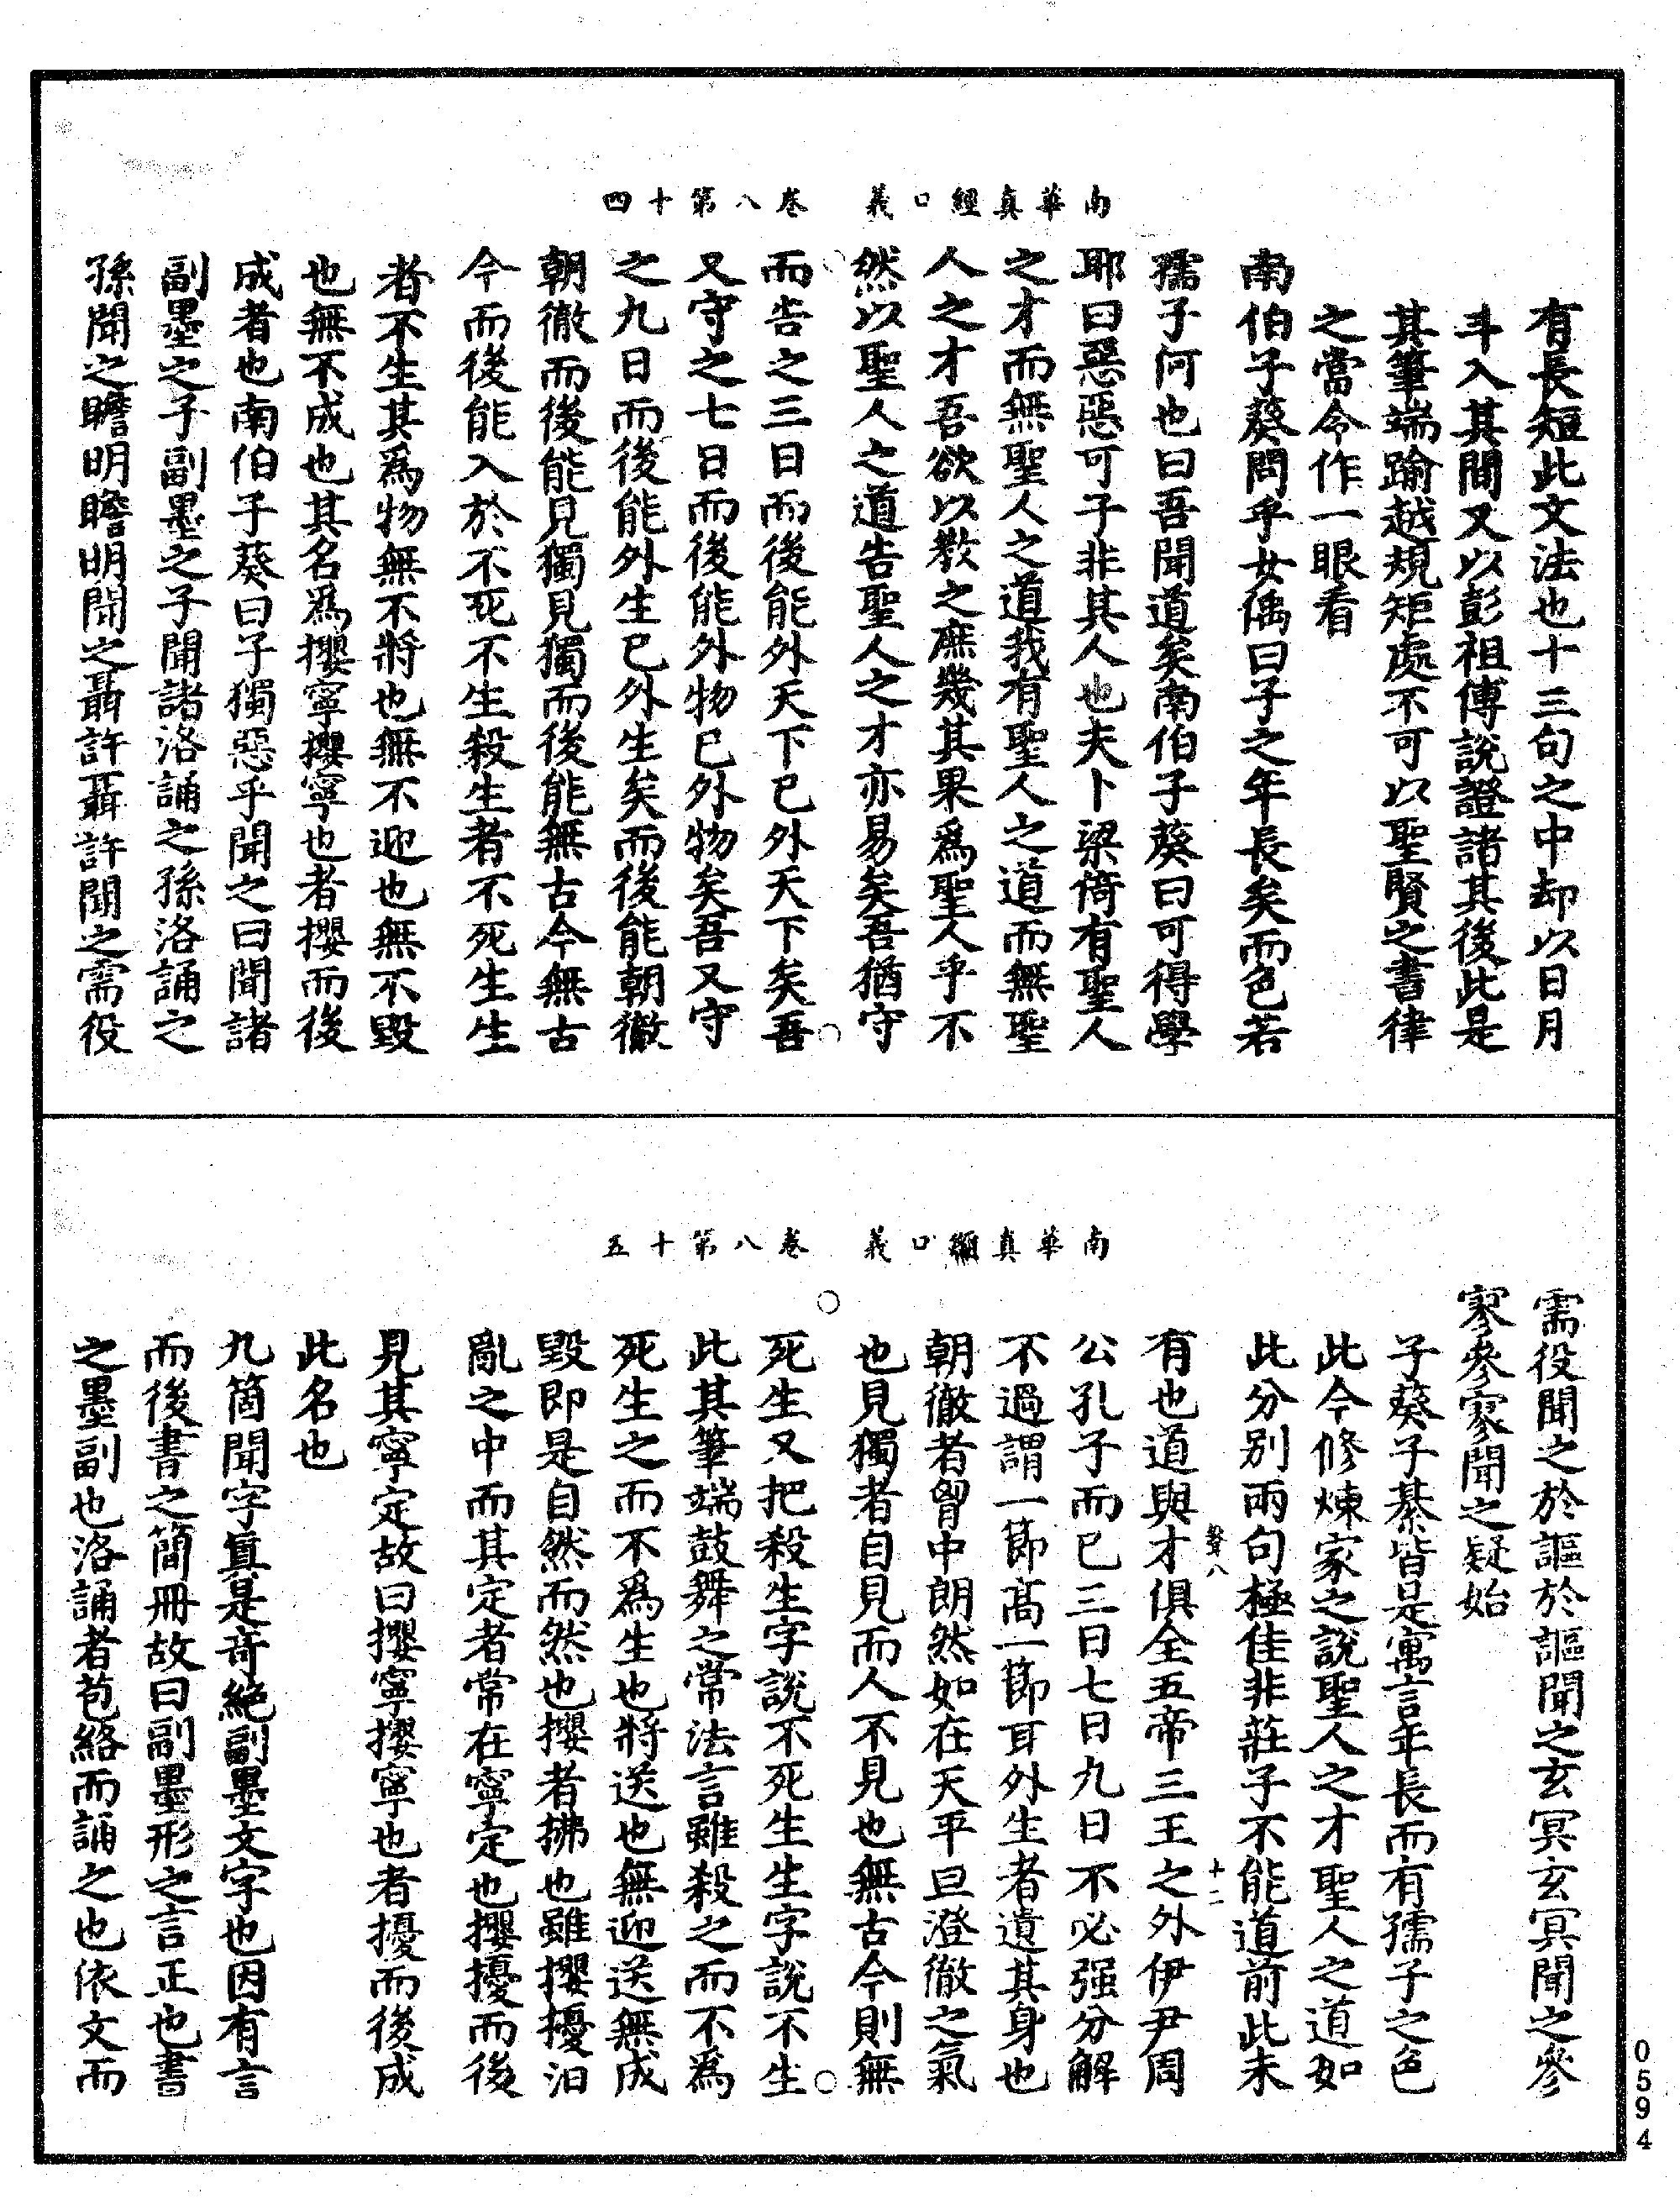 南華真經口義　卷八第十四
有長短此文法也十三句之中却以日月
斗入其間又以彭祖傅說證諸其後此是
其筆端踰越規矩處不可以聖賢之書律
之當令作一眼看
南伯子葵問乎女偊曰子之年長矣而色若
孺子何也曰吾聞道矣南伯子葵曰可得學
耶曰惡惡可子非其人也夫卜梁倚有聖人
之才而無聖人之道我有聖人之道而無聖
人之才吾欲以教之庶幾其果爲聖人乎不
然以聖人之道告聖人之才亦易矣吾猶守
而告之三日而後能外天下已外天下矣吾
又守之七日而後能外物已外物矣吾又守
之九日而後能外生已外生矣而後能朝徹
朝徹而後能見獨見獨而後能無古今無古
今而後能入於不死不生殺生者不死生生
者不生其爲物無不將也無不迎也無不毀
也無不成也其名爲攖寧攖寧也者攖而後
成者也南伯子葵曰子獨惡乎聞之曰聞諸
副墨之子副墨之子聞諸洛誦之孫洛誦之
孫聞之瞻明瞻明聞之聶許聶許聞之需役
南華真經口義　卷八第十五
需役聞之於謳於謳聞之玄冥玄冥聞之參
寥參寥聞之疑始
子葵子綦皆是寓言年長而有孺子之色
此今修煉家之說聖人之才聖人之道如
此分別兩句極佳非莊子不能道前此未
聲八　十二
有也道與才俱全五帝三王之外伊尹周
公孔子而已三日七日九日不必强分解
不過謂一節高一節耳外生者遺其身也
朝徹者胷中朗然如在天平旦澄徹之氣
也見獨者自見而人不見也無古今則無
死生又把殺生字說不死生生字說不生
此其筆端鼓舞之常法言雖殺之而不爲
死生之而不爲生也將送也無迎送無成
毀即是自然而然也攖者拂也雖攖擾汩
亂之中而其定者常在寧定也攖擾而後
見其寧定故曰攖寧攖寧也者擾而後成
此名也
九箇聞字眞是奇絕副墨文字也因有言
而後書之簡冊故曰副墨形之言正也書
之墨副也洛誦者苞絡而誦之也依文而
0594